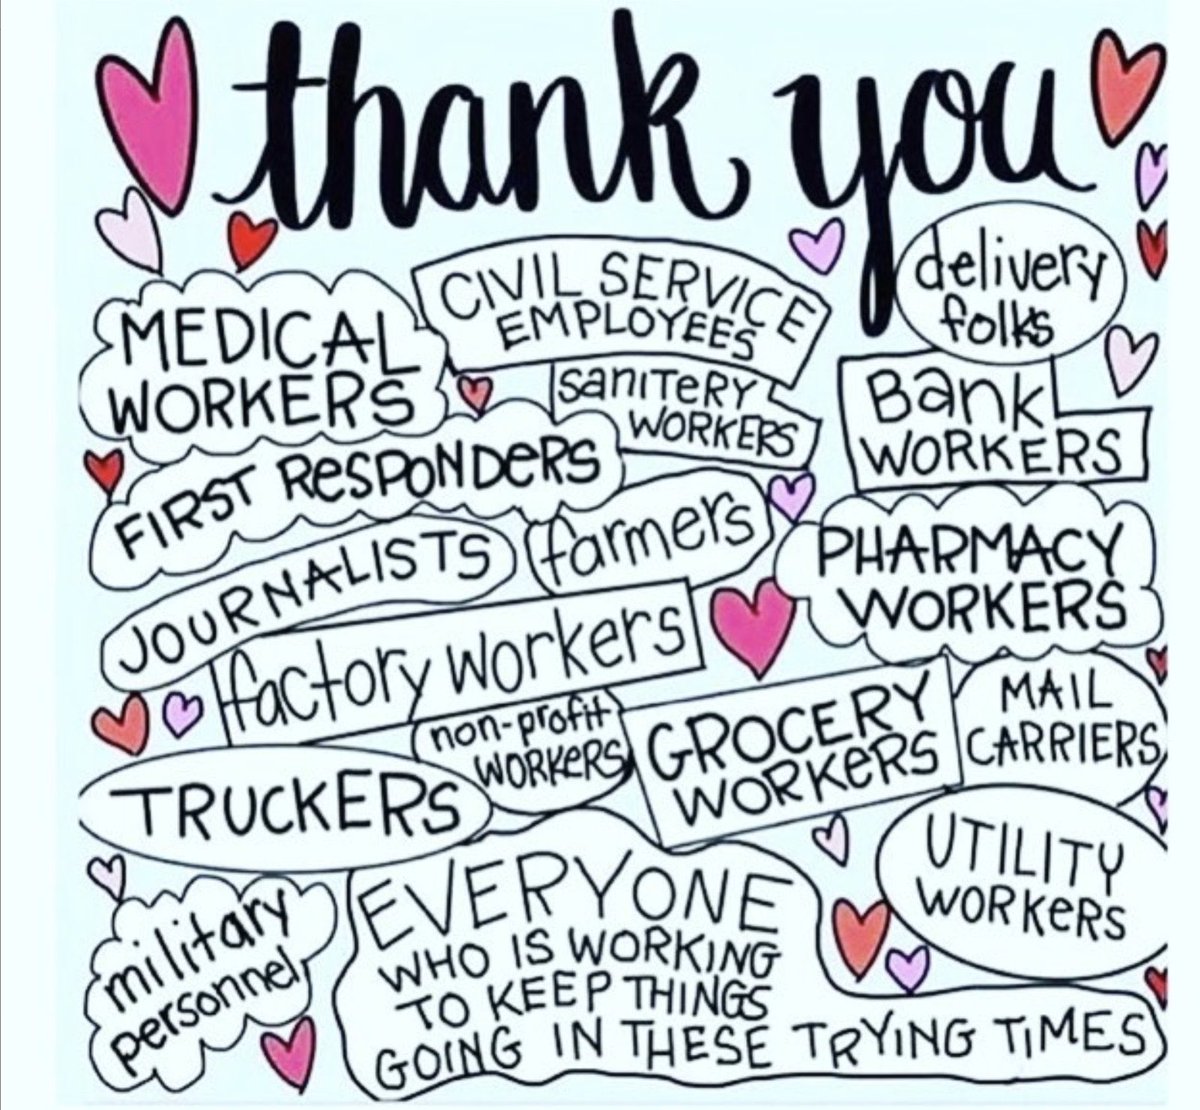 thank you
delivery
folks
CIVIL SERVICE
EMPLOYEES
MEDICAL
WORKERS
SANITERY
WORKERS
Bank
WORKERS
FIRST RESPONDERS
farmers
JOURNALISTS
PHARMACY
WORKERS
factory workers
non-profit
WORKERS
GROCERY
WORKERS
MAIL
CARRIERS
TRUCKERS
UTILITY
WORKERS
military
personnel
EVERYONE
WHO IS WORKING
TO KEEP THINGS
GOING IN THESE TRYING TIMES